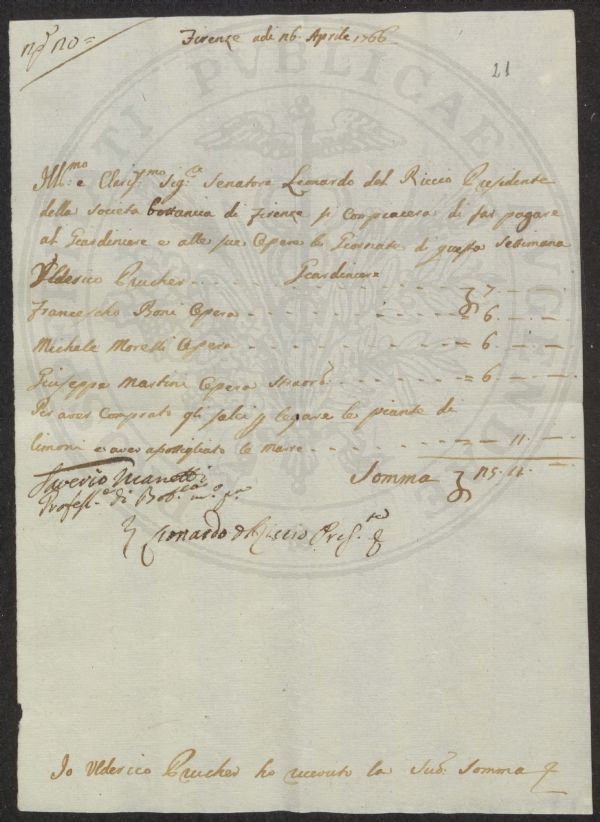 Nº 20=
Firenze adi 26. Aprile 1766
21
PUBLICAE
Ill:mo e Clariss:mo Sig:re Senatore Leonardo del Riccio Presidente
della Società Bottanica di Firenze si compiacerà di far pagare
al Giardiniere e alle sue Opere le Giornate di questa Settimana
Ulderico Prucher - - - - Giardiniere - - - - 7 - -
Francescho Boni Opera - - - - = 6 - -
Michele Moretti Opera - - - - = 6 - -
Giuseppe Martini Opera straor:
- - - - = 6 - -
Per aver comprato gli salci p legare le piante di
limoni e aver le marre - - - - 11 -
Saverio Manetti
Profess:e di Bot:ca
Somma 25. 11 -
Leonardo del Riccio Pres:te
Io Ulderico Prucher ho ricevuto la Sud: Somma